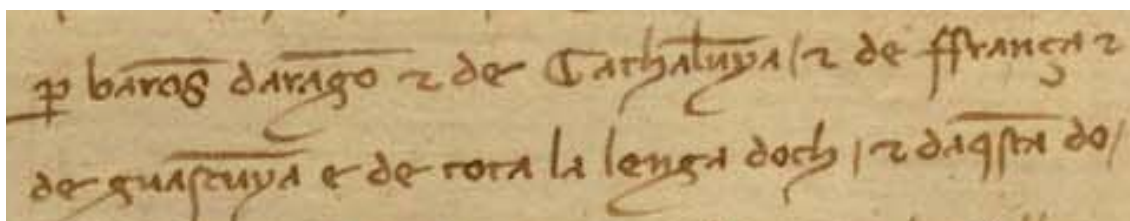 ꝑ barōs darago ⁊ de Cathaluya / ⁊ de ffrança ⁊
de guascuya e de tota la lenga doch / ⁊ daqsta do /